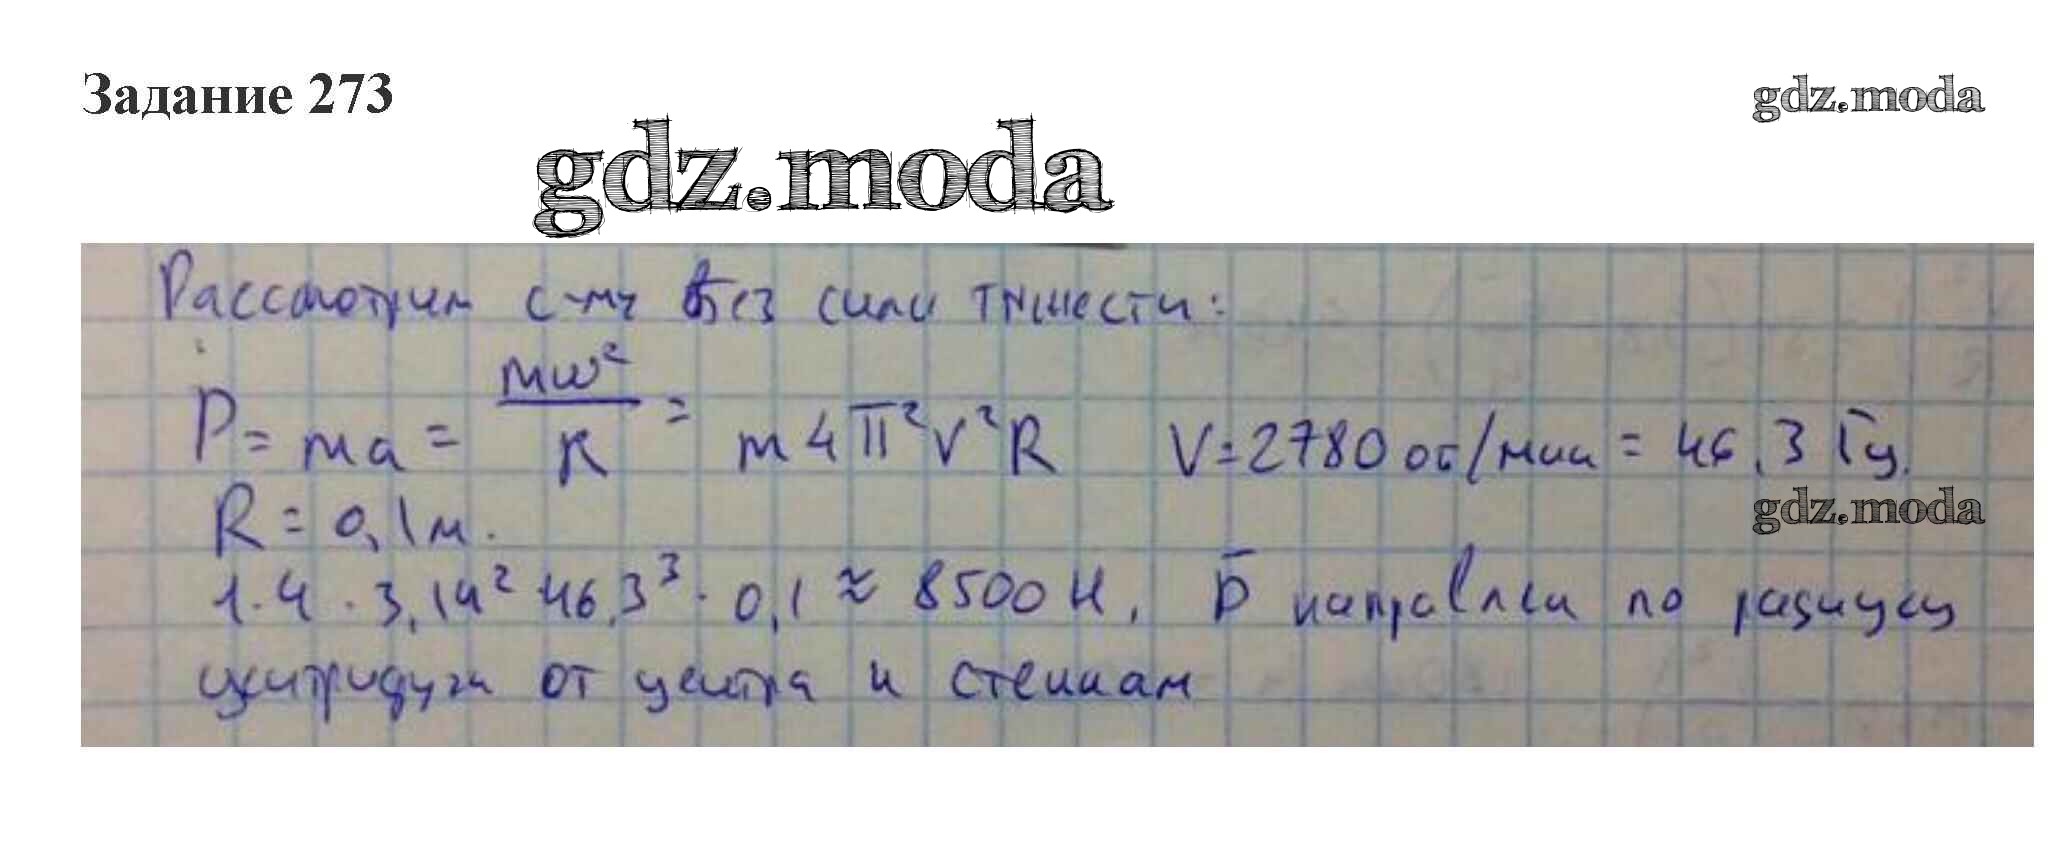 Задание 273
gdz.moda
gdz.moda
Рассмотрим с-му без силы тяжести:
P = ma = mω²/R = m4π²ν²R ν=2780 об/мин = 46,3 Гц.
gdz.moda
R = 0,1 м.
1·4·3,14²·46,3³·0,1 ≈ 8500 Н, P̄ направлен по радиусу
центрифуги от центра к стенкам